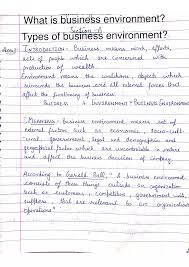 What is business environment?
Section-A
Types of business environment?
INTRODUCTION: Business means work, efforts,
acts of people which are concerned with
production of wealth
Environment means the conditions, objects which
surrounds the business and all external forces that
affect the functioning of business.
BUSINESS + ENVIRONMENT = BUSINESS ENVIRONMENT
MEANING: Business environment means set of
external factors such as economic, socio-cult-
ural, government, legal and demographic and
geographical factor which are uncontrollable in nature
and affect the business decision of company.
According to Gerald Bell, "A business environment
consists of those things outside an organisation
such as customers, competitors, government,
suppliers, that are relevant to an organisation
operations"